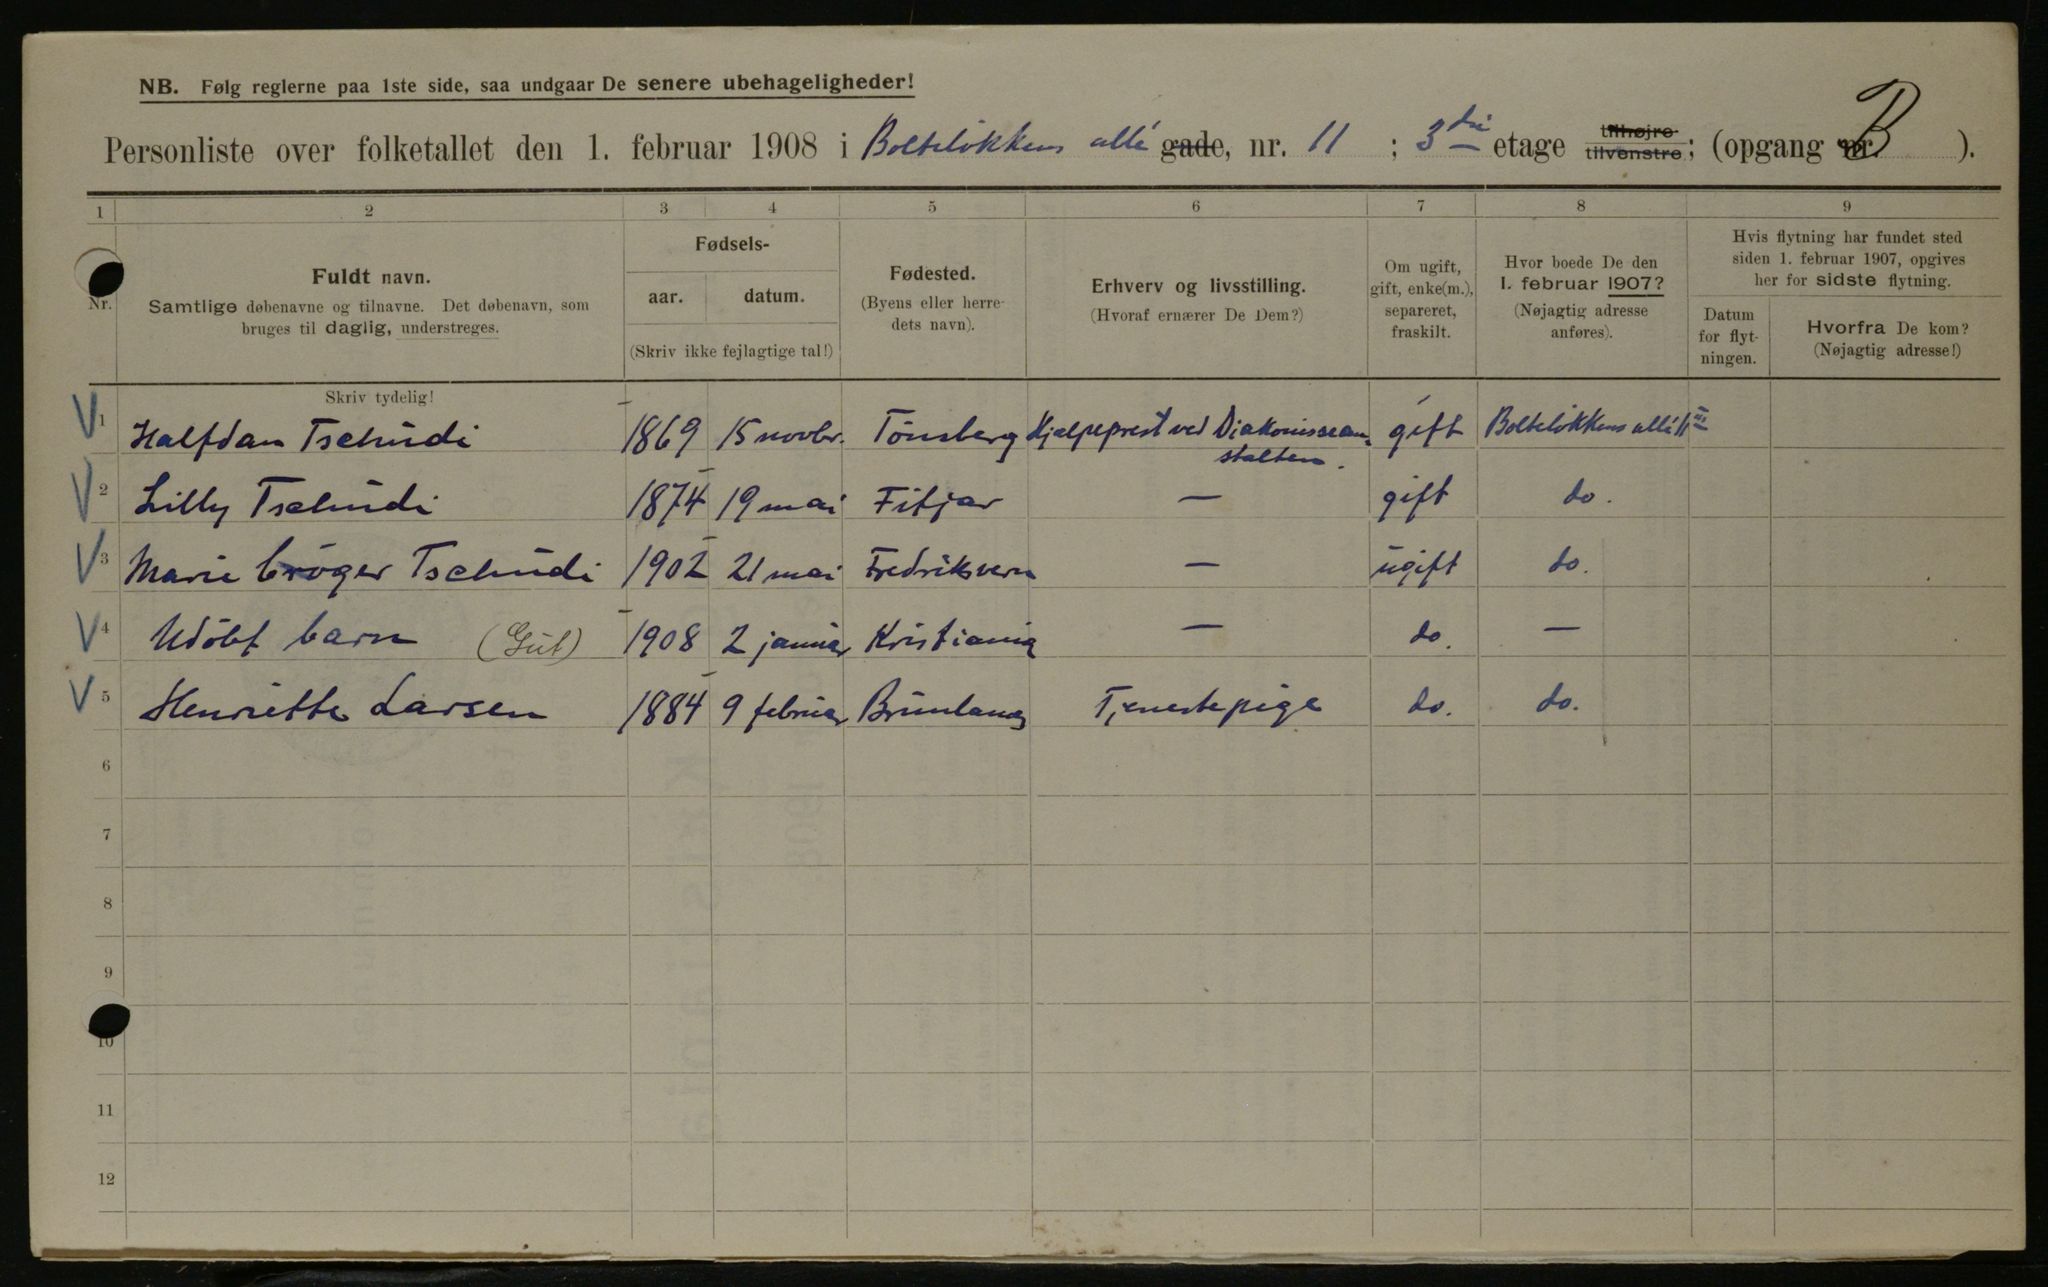 NB. Følg reglerne paa 1ste side, saa undgaar De senere ubehageligheder!
Personliste over folketallet den 1. februar 1908 i Bolteløkkens allé gade, nr. 11 ; 3die etage tilhøjre tilvenstre; (opgang nr. B ).
1 2 3 4 5 6 7 8 9
Nr.
Fuldt navn.
Samtlige døbenavne og tilnavne. Det døbenavn, som
bruges til daglig, understreges.
Fødsels-
aar. datum.
(Skriv ikke fejlagtige tal!)
Fødested.
(Byens eller herre-
dets navn).
Erhverv og livsstilling.
(Hvoraf ernærer De Dem?)
Om ugift,
gift, enke(m.),
separeret,
fraskilt.
Hvor boede De den
1. februar 1907?
(Nøjagtig adresse
anføres).
Hvis flytning har fundet sted
siden 1. februar 1907, opgives
her for sidste flytning.
Datum
for flyt-
ningen.
Hvorfra De kom?
(Nøjagtig adresse!)
Skriv tydelig!
1 Halfdan Tschudi 1869 15 novbr. Tönsberg Hjelpeprest ved Diakonissean- gift Bolteløkkens allé 11
stalten.
2 Lilly Tschudi 1874 19 mai Fitjar — gift do.
3 Marie Cröger Tschudi 1902 21 mai Fredriksvern — ugift do.
4 Udöbt barn (Gut) 1908 2 januar Kristiania — do. —
5 Henriette Larsen 1884 9 februar Brunlanes Tjenestepige do. do.
6
7
8
9
10
11
12